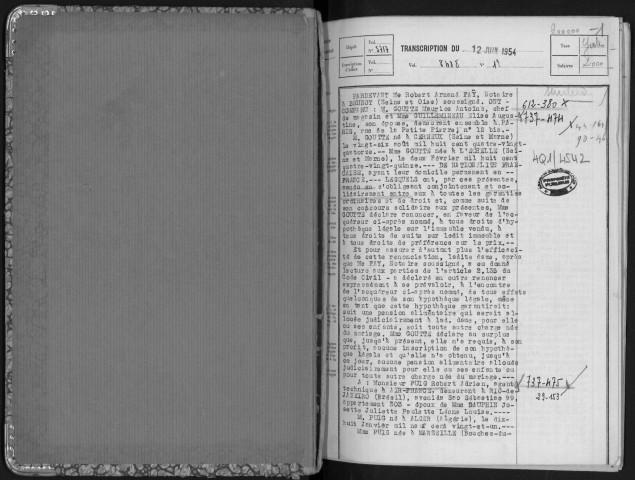 Dépôt
Vol.
N°
TRANSCRIPTION DU 12 JUIN 1954
Vol. N° 1
Taxe
Salaires
1
PARDEVANT Me Robert Armand FAY, Notaire
à BOUSSY (Seine et Oise) soussigné. ONT
COMPARU : M. GOUTTE Maurice Antoine, chef
de magasin et Mme GUILLEMINEAU Elise Augus-
tine, son épouse, demeurant ensemble à PA-
RIS, rue de la Petite Pierre, n° 12 bis.-
M. GOUTTE né à CERNEUX (Seine et Marne)
le vingt-six août mil huit cent quatre-vingt-
quatorze.-- Mme GOUTTE née à L'ECHELLE (Sei-
ne et Marne), le deux Février mil huit cent
quatre-vingt-quinze.--- DE NATIONALITE FRAN-
CAISE, ayant leur domicile permanent en--
FRANCE.-- LESQUELS ont, par ces présentes,
vendu en s'obligeant conjointement et so-
lidairement entre eux à toutes les garanties
ordinaires et de droit et, comme suite de
son concours solidaire aux présentes, Mme
GOUTTE déclare renoncer, en faveur de l'ac-
quéreur ci-après nommé, à tous droits d'hy-
pothèque légale sur l'immeuble vendu, à
tous droits de suite sur ledit immeuble et
à tous droits de préférence sur le prix.--
Et pour assurer d'autant plus l'efficaci-
té de cette renonciation, ledite dame, après
que Me FAY, Notaire soussigné, a eu donné
lecture aux parties de l'article 2.135 du
Code Civil - a déclaré en outre renoncer
expressément à se prévaloir, à l'encontre
de l'acquéreur ci-après nommé, de tous effets
quelconques de son hypothèque légale, même
en tant que cette hypothèque garantirait:
soit une pension alimentaire qui serait al-
louée judiciairement à lad. dame, pour elle
ou ses enfants, soit toute autre charge née
du mariage. Mme GOUTTE déclare au surplus
que, jusqu'à présent, elle n'a requis, à son
profit, aucune inscription de son hypothè-
que légale et qu'elle n'a obtenu, jusqu'à
ce jour, aucune pension alimentaire allouée
judiciairement pour elle ou ses enfants ou
pour toute autre charge née du mariage.----
A : Monsieur PUIG Robert Adrien, agent
technique à AIR-FRANCE, demeurant à RIO-de-
JANEIRO (Brésil), avenida Sao Sébastien 99,
appartement 303 - époux de Mme DAUPHIN Jo-
sette Juliette Paulette Léone Louise.----
M. PUIG né à ALGER (Algérie), le dix-
huit Janvier mil neuf cent vingt-et-un.---
Mme PUIG née à MARSEILLE (Bouches-du-
612-380 X
737-474
4Q1/4542
737-475
29-153